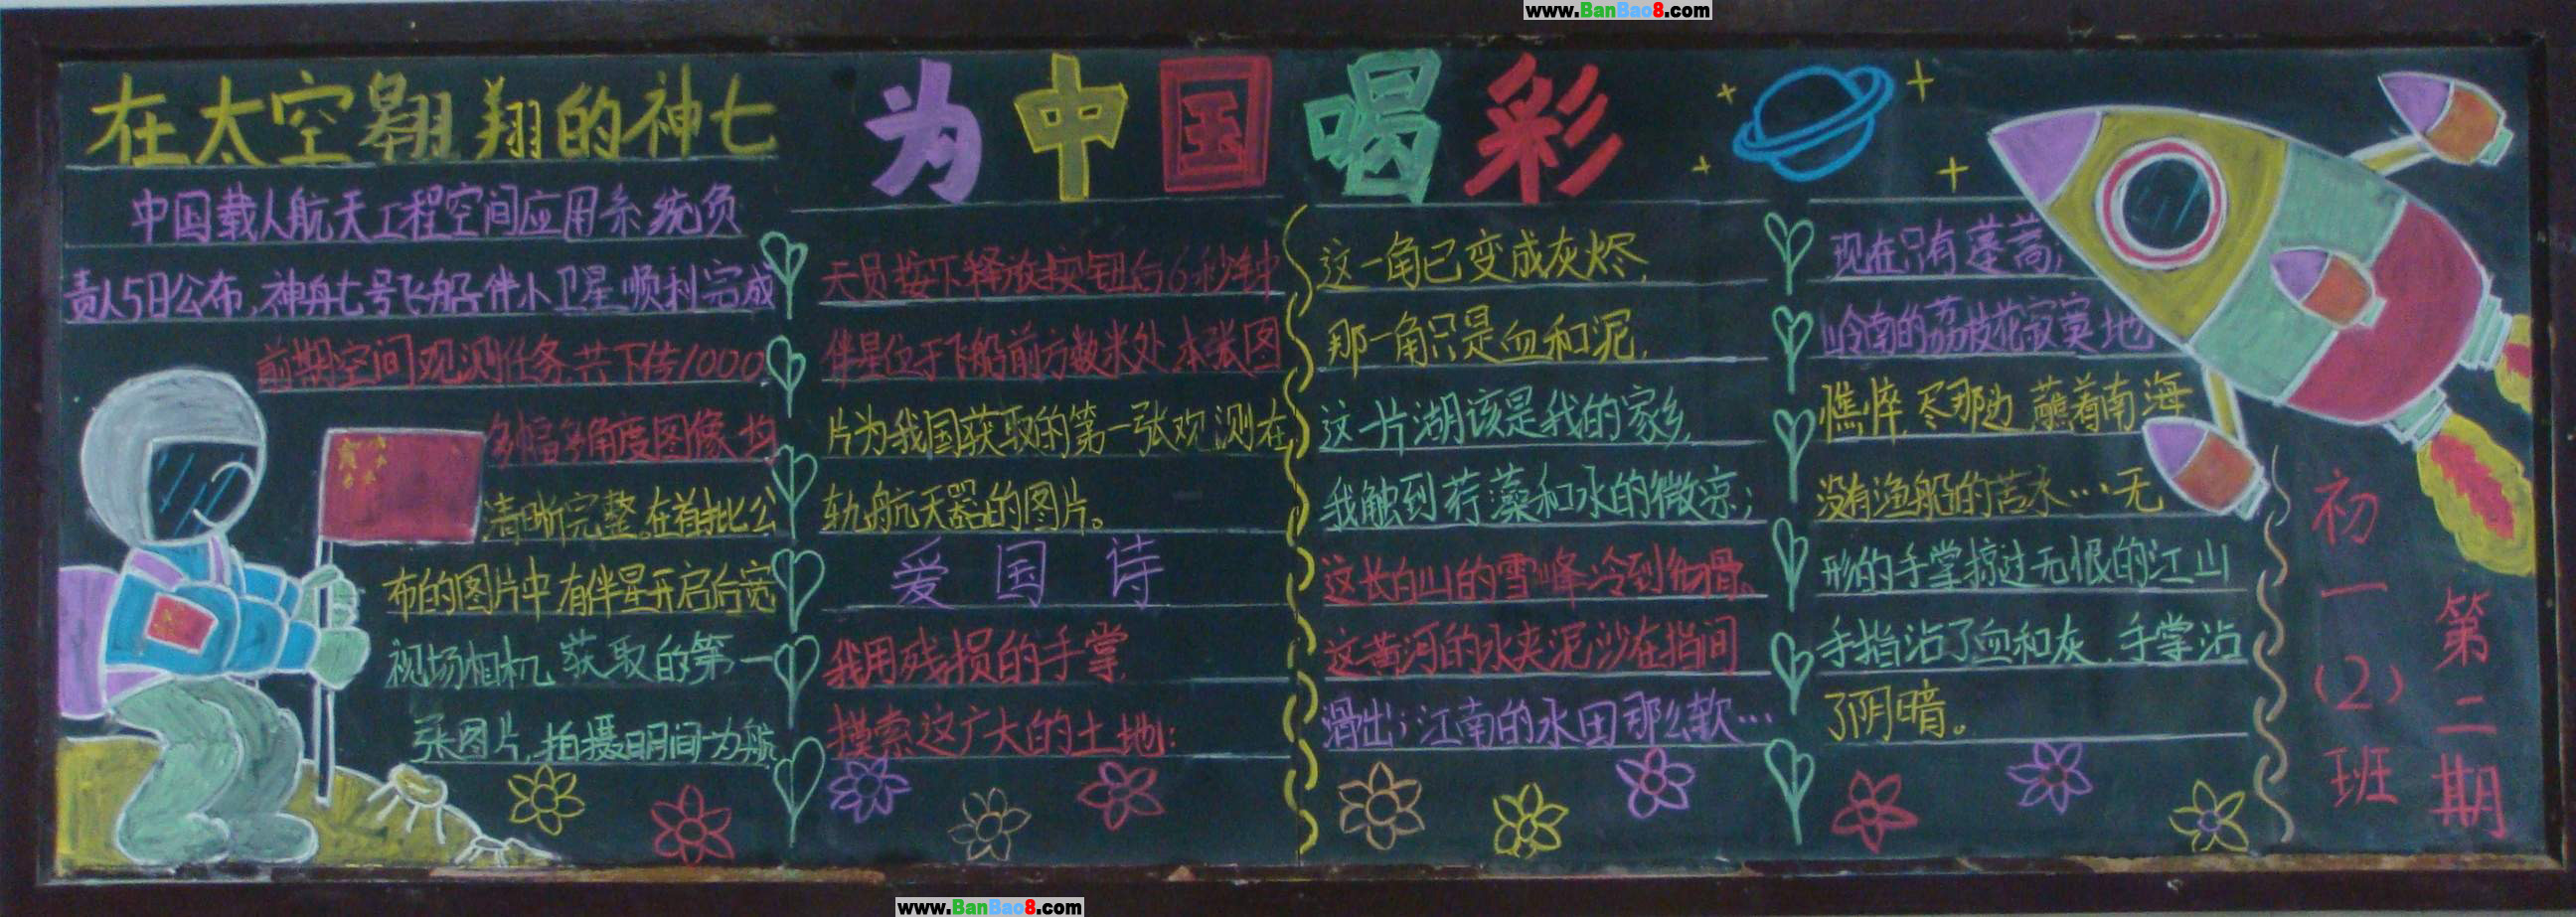 www.BanBao8.com
为中国喝彩
在太空翱翔的神七
中国载人航天工程空间应用系统负
责人5日公布,神舟七号飞船伴小卫星顺利完成
前期空间观测任务,共下传1000
多幅多角度图像,均
清晰完整。在首批公
布的图片中,有伴星开启后宽
视场相机,获取的第一
张图片,拍摄时间为航
天员按下释放按钮后6秒钟
伴星位于飞船前方数米处,本张图
片为我国获取的第一张观测在
轨航天器的图片。
爱国诗
我用残损的手掌
摸索这广大的土地:
这一角已变成灰烬,
那一角只是血和泥,
这一片湖该是我的家乡,
我触到荇藻和水的微凉;
这长白山的雪峰冷到彻骨,
这黄河的水夹泥沙在指间
滑出;江南的水田那么软…
现在只有蓬蒿;
岭南的荔枝花寂寞地
憔悴,尽那边,蘸着南海
没有渔船的苦水…无
形的手掌掠过无恨的江山
手指沾了血和灰,手掌沾
了阴暗。
初一(2)班
第二期
www.BanBao8.com